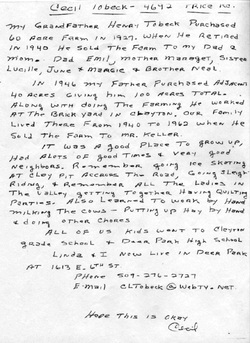 Cecil Tobeck - 4692 Price Rd.
My Grandfather Henry Tobeck Purchased
60 acre Farm in 1927. When He Retired
in 1940 He Sold The Farm To My Dad &
Mom. Dad Emil, Mother Margret, Sister
Lucille, June & Margie & Brother Neal.
In 1946 my Father Purchased Adjacent
40 acres Giving him 100 acres Total.
Along with Doing The Farming He worked
AT The Brick yard in Clayton. Our Family
Lived There From 1940 to 1962 when He
Sold The Farm To Mr. Keller.
It was a Good Place To grow up,
Had alots of Good Times & very Good
Neighbors. Remember going Ice Skating
at Clay Pit Accross The Road, Going Sleigh
Riding, & Remember All The Ladies in
The Valley getting Together Having Quilting
Parties. Also Learned To work by Hand
Milking The Cows - Putting up Hay by Hand
& Doing other Chores
All of us Kids went To Clayton
grade School & Deer Park High School
Linda & I Now Live in Deer Park
AT 1613 E. 6th ST
Phone 509-276-2727
E-Mail CLTobeck@Webtv.Net
Hope This is okay
Cecil